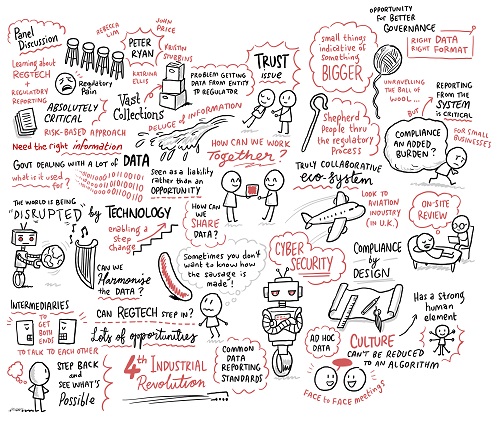 Panel
Discussion
REBECCA
LIM
PETER
RYAN
JOHN
PRICE
KRISTIN
STUBBINS
KATRINA
ELLIS
Learning about
REGTECH
+
REGULATORY
REPORTING
Regulatory
Pain
ABSOLUTELY
CRITICAL
RISK-BASED APPROACH
Need the right information
Vast
Collections
PROBLEM GETTING
DATA FROM ENTITY
TO REGULATOR
DELUGE of INFORMATION
TRUST
ISSUE
small things
indicative of
something
BIGGER
OPPORTUNITY
FOR BETTER
GOVERNANCE
RIGHT DATA
RIGHT FORMAT
UNRAVELLING
THE BALL OF
WOOL...
BUT
REPORTING
FROM THE
SYSTEM
IS CRITICAL
Shepherd
PEOPLE thru
the regulatory
PROCESS
COMPLIANCE
AN ADDED
BURDEN?
FOR SMALL
BUSINESSES
GOVT DEALING WITH A LOT of DATA
what is it used
for?
Seen as a liability
rather than an
OPPORTUNITY
HOW CAN WE WORK
Together?
TRULY COLLABORATIVE
eco-system
LOOK TO
AVIATION
INDUSTRY
(IN U.K.)
ON-SITE
REVIEW
THE WORLD IS BEING
"DISRUPTED" by TECHNOLOGY
enabling a
STEP
CHANGE
HOW CAN
WE
SHARE
DATA?
CAN WE
Harmonise
THE DATA?
Sometimes you don't
want to know how
the sausage is
made!
CYBER
SECURITY
COMPLIANCE
by
DESIGN
INTERMEDIARIES
TO GET
BOTH
ENDS
TO TALK TO EACH OTHER
CAN REGTECH STEP IN?
Lots of opportunities
STEP BACK
and SEE
WHAT'S
Possible
4th INDUSTRIAL
Revolution
COMMON
DATA
REPORTING
STANDARDS
AD HOC
DATA
FACE to FACE meetings
Has a strong
human
element
CULTURE
CAN'T BE REDUCED
TO AN ALGORITHM